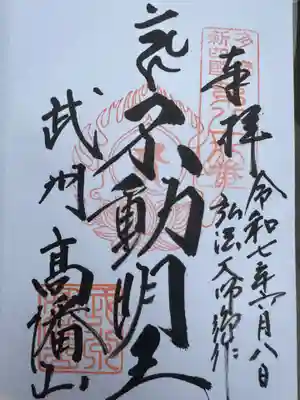 多摩
新四国
八十八番
奉拝
令和七年六月八日
弘法大師
不動明王
武州
高幡山